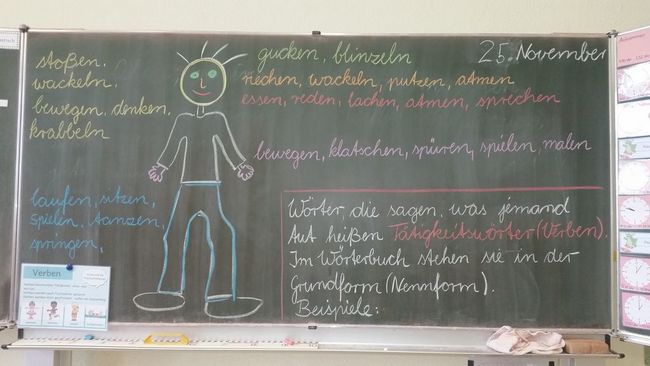 stoßen,
wackeln,
bewegen, denken,
krabbeln
gucken, blinzeln
25. November
riechen, wackeln, putzen, atmen
essen, reden, lachen, atmen, sprechen
bewegen, klatschen, spüren, spielen, malen
laufen, sitzen,
spielen, tanzen,
springen,
Wörter, die sagen, was jemand
tut heißen Tätigkeitswörter (Verben).
Im Wörterbuch stehen sie in der
Grundform (Nennform).
Beispiele:
Verben